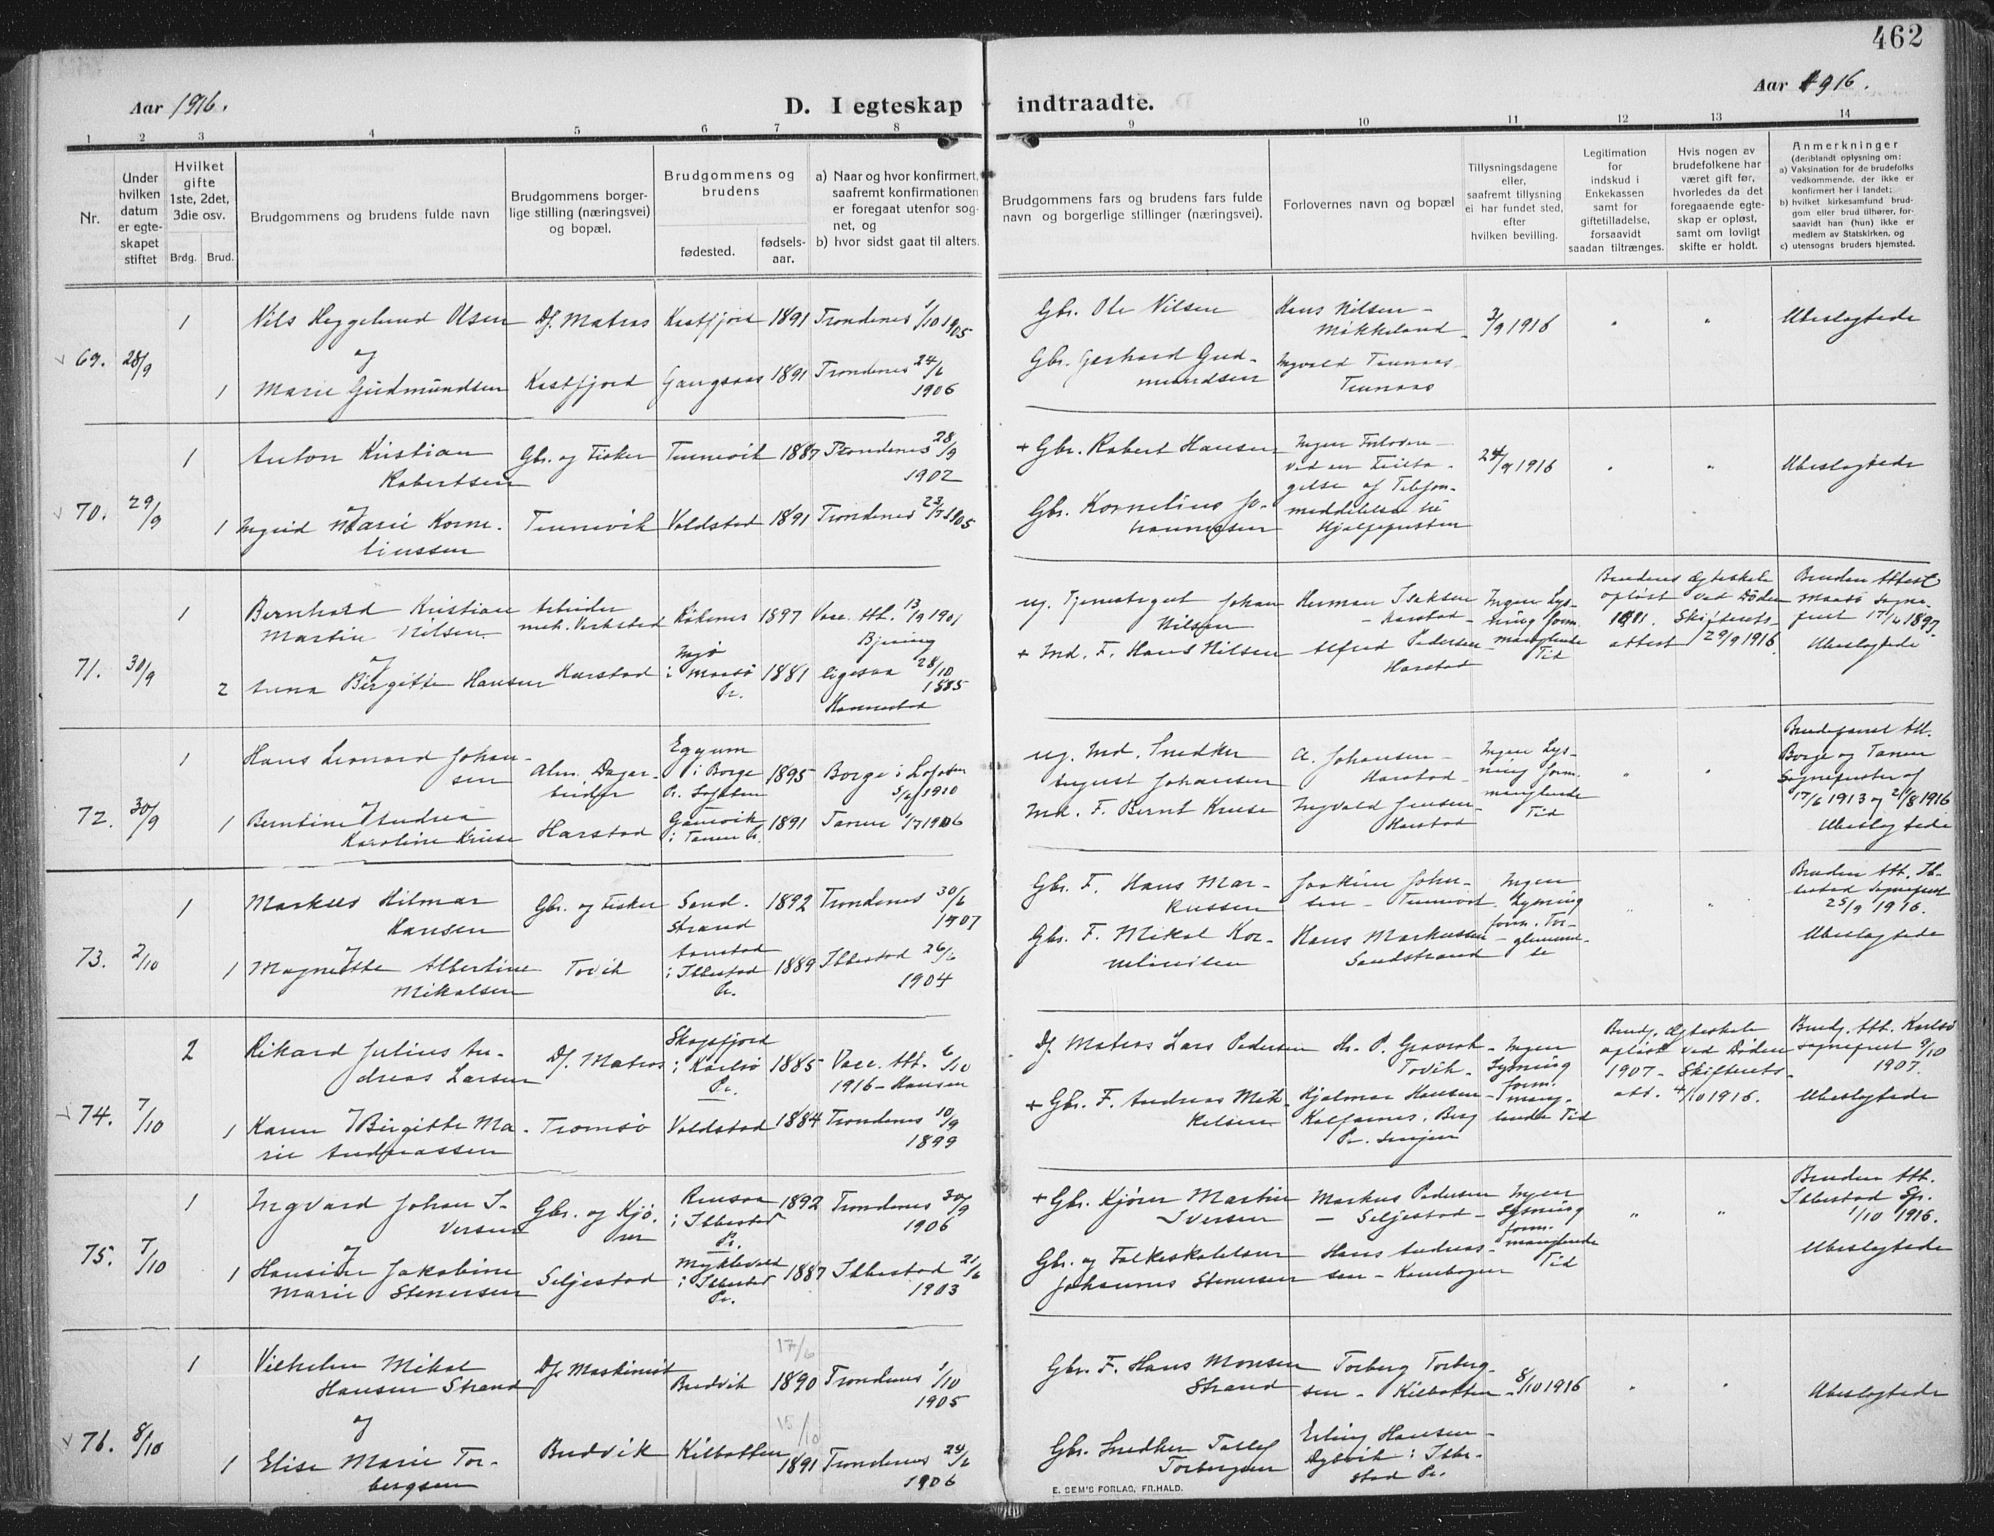 462
Aar 1916.
D. I egteskap indtraadte.
Aar 1916.
1 2 3 4 5 6 7 8 9 10 11 12 13 14
Nr.
Under hvilken datum er egteskapet stiftet
Hvilket gifte 1ste, 2det, 3die osv.
Brdg. Brud.
Brudgommens og brudens fulde navn
Brudgommens borgerlige stilling (næringsvei) og bopæl.
Brudgommens og brudens
fødested. fødselsaar.
a) Naar og hvor konfirmert, saafremt konfirmationen er foregaat utenfor sognet, og
b) hvor sidst gaat til alters.
Brudgommens fars og brudens fars fulde navn og borgerlige stillinger (næringsvei).
Forlovernes navn og bopæl
Tillysningsdagene eller, saafremt tillysning ei har fundet sted, efter hvilken bevilling.
Legitimation for indskud i Enkekassen samt for giftetilladelse, forsaavidt saadan tiltrænges.
Hvis nogen av brudefolkene har været gift før, hvorledes da det foregaaende egteskap er opløst, samt om lovligt skifte er holdt.
Anmerkninger
(deriblandt oplysning om:
a) Vaksination for de brudefolks vedkommende, der ikke er konfirmert her i landet;
b) hvilket kirkesamfund brudgom eller brud tilhører, forsaavidt han (hun) ikke er medlem av Statskirken, og
c) utensogns bruders hjemsted.
69. 28/9
1 Nils Heggelund Olsen Df. Matros Kastfjord 1891 Trondenes 1/10 1905 Gbr. Ole Nilsen Hans Nilsen - Møkkeland 3/9 1916 " " Ubeslegtede
og
1 Marie Gudmundsen Kastfjord Gangsaas 1891 Trondenes 24/6 1906 Gbr. Gerhard Gudmundsen Ingvald Tennaas Tennaas
70. 29/9
1 Anton Kristian Robertsen Gbr. og Fisker Tennevik 1887 Trondenes 28/9 1902 + Gbr. Robert Hansen 24/9 1916 " " Ubeslegtede
og
1 Ingrid Marie Korneliussen Tennevik Voldstad 1891 Trondenes 1905 Gbr. Kornelius Johannessen
Ingen Forlovere - gelse af Telefonmeddelelse til Hjelpepresten
71. 30/9
1 Bernhard Kristian Martin Nilsen Arbeider mek. Verksted 1897 Vacc. Att. 13/9 1901 ug. Tjenestegut Johan Nilsen Herman Isaksen - Harstad - Ingen Lysning form. manglende Tid
og
2 Anna Birgitte Hansen Harstad i Maasø Pr. 1881 ligesaa 28/10 1885 + Ind. F. Hans Nilsen Alfred Pedersen Harstad
Brudens Ægteskab opløst ved Døden Skifteretsattest 29/9 1916
Bruden Attest Maasø Sogneprest 17/6 1897. Ubeslegtede
72. 30/9
1 Hans Leonard Johansen Alm. Dagarbeider Eggum i Borge Pr. Lofoten 1895 Borge i Lofoten 5/6 1910 ug. Ind. Snedker August Johansen A. Johansen - Harstad - Ingen Lysning form. manglende Tid " "
og
1 Berntine Andrea Karoline Kruse Harstad i Tanen Pr. 1891 Tanen 1906 Ind. F. Bernt Kruse Ingvald Jensen - Harstad
Brudefolket Att. Borge og Tanen Sogneprester af 17/6 1913 og 21/8 1916 Ubeslegtede
73. 2/10
1 Markus Hilmar Hansen Gbr. og Fisker Sandstrand 1892 Trondenes 30/6 1907 Gbr. F. Hans Markussen Joakim Johnsen - Tennevik Ingen Lysning form. Forglemmelse " "
og
1 Magnette Albertine Mikalsen Tovik Aanstad i Ibbestad Pr. 1889 Ibbestad 26/6 1904 Gbr. F. Mikal Korneliusen Hans Markussen - Sandstrand
Bruden Att. Ibbestad Sogneprest 25/9 1916. Ubeslegtede
74. 7/10
2 Rikard Julius Andreas Larsen Df. Matros Skogsfjord i Karlsø Pr. 1885 Vacc. Att. 6/10 1916 - Hansen Df. Matros Lars Pedersen Hr. P. Gravrok - Tovik - Ingen Lysning form. manglende Tid
og
1 Karen Birgitte Marie Andreassen Tromsø Voldstad 1884 Trondenes 10/9 1899 + Gbr. F. Andreas Mikkelsen Hjalmar Hansen - Kalfarnes, Berg Pr. Senjen
Brudg. Ægteskab opløst ved Døden 1907 - Skifteretsatt. 4/10 1916.
Brudg. Att. Karlsø Sogneprest 9/10 1907. Ubeslegtede
75. 7/10
1 Ingvard Johan Iversen Gbr. og Kjører Rensaa i Ibbestad Pr. 1892 Trondenes 30/9 1906 + Gbr. Kjører Martin Iversen Markus Pedersen - Seljestad - Ingen Lysning form. manglende Tid " "
og
1 Hansine Jakobine Marie Stenersen Seljestad Myklevold i Ibbestad Pr. 1887 Ibbestad 21/6 1903 Gbr. og Folkeskolelærer Johannes Stenersen Hans Andreassen - Kanebogen
Bruden Att. Ibbestad Spr. 1/10 1916. Ubeslegtede
76. 8/10
1 Vilhelm Mikal Hansen Strand Df. Maskinist Budvik 17/6 1890 Trondenes 1/10 1905 Gbr. F. Hans Monsen Strand Torberg Torbergsen - Kilbotten 8/10 1916 " " Ubeslegtede
og
1 Elise Marie Torbergsen Budvik Kilbotten 15/10 1891 Trondenes 24/6 1906 Gbr. Snedker Tollef Torbergsen Erling Hansen - Dyrvik i Ibbestad Pr.
E. SEM'S FORLAG, FR.HALD.